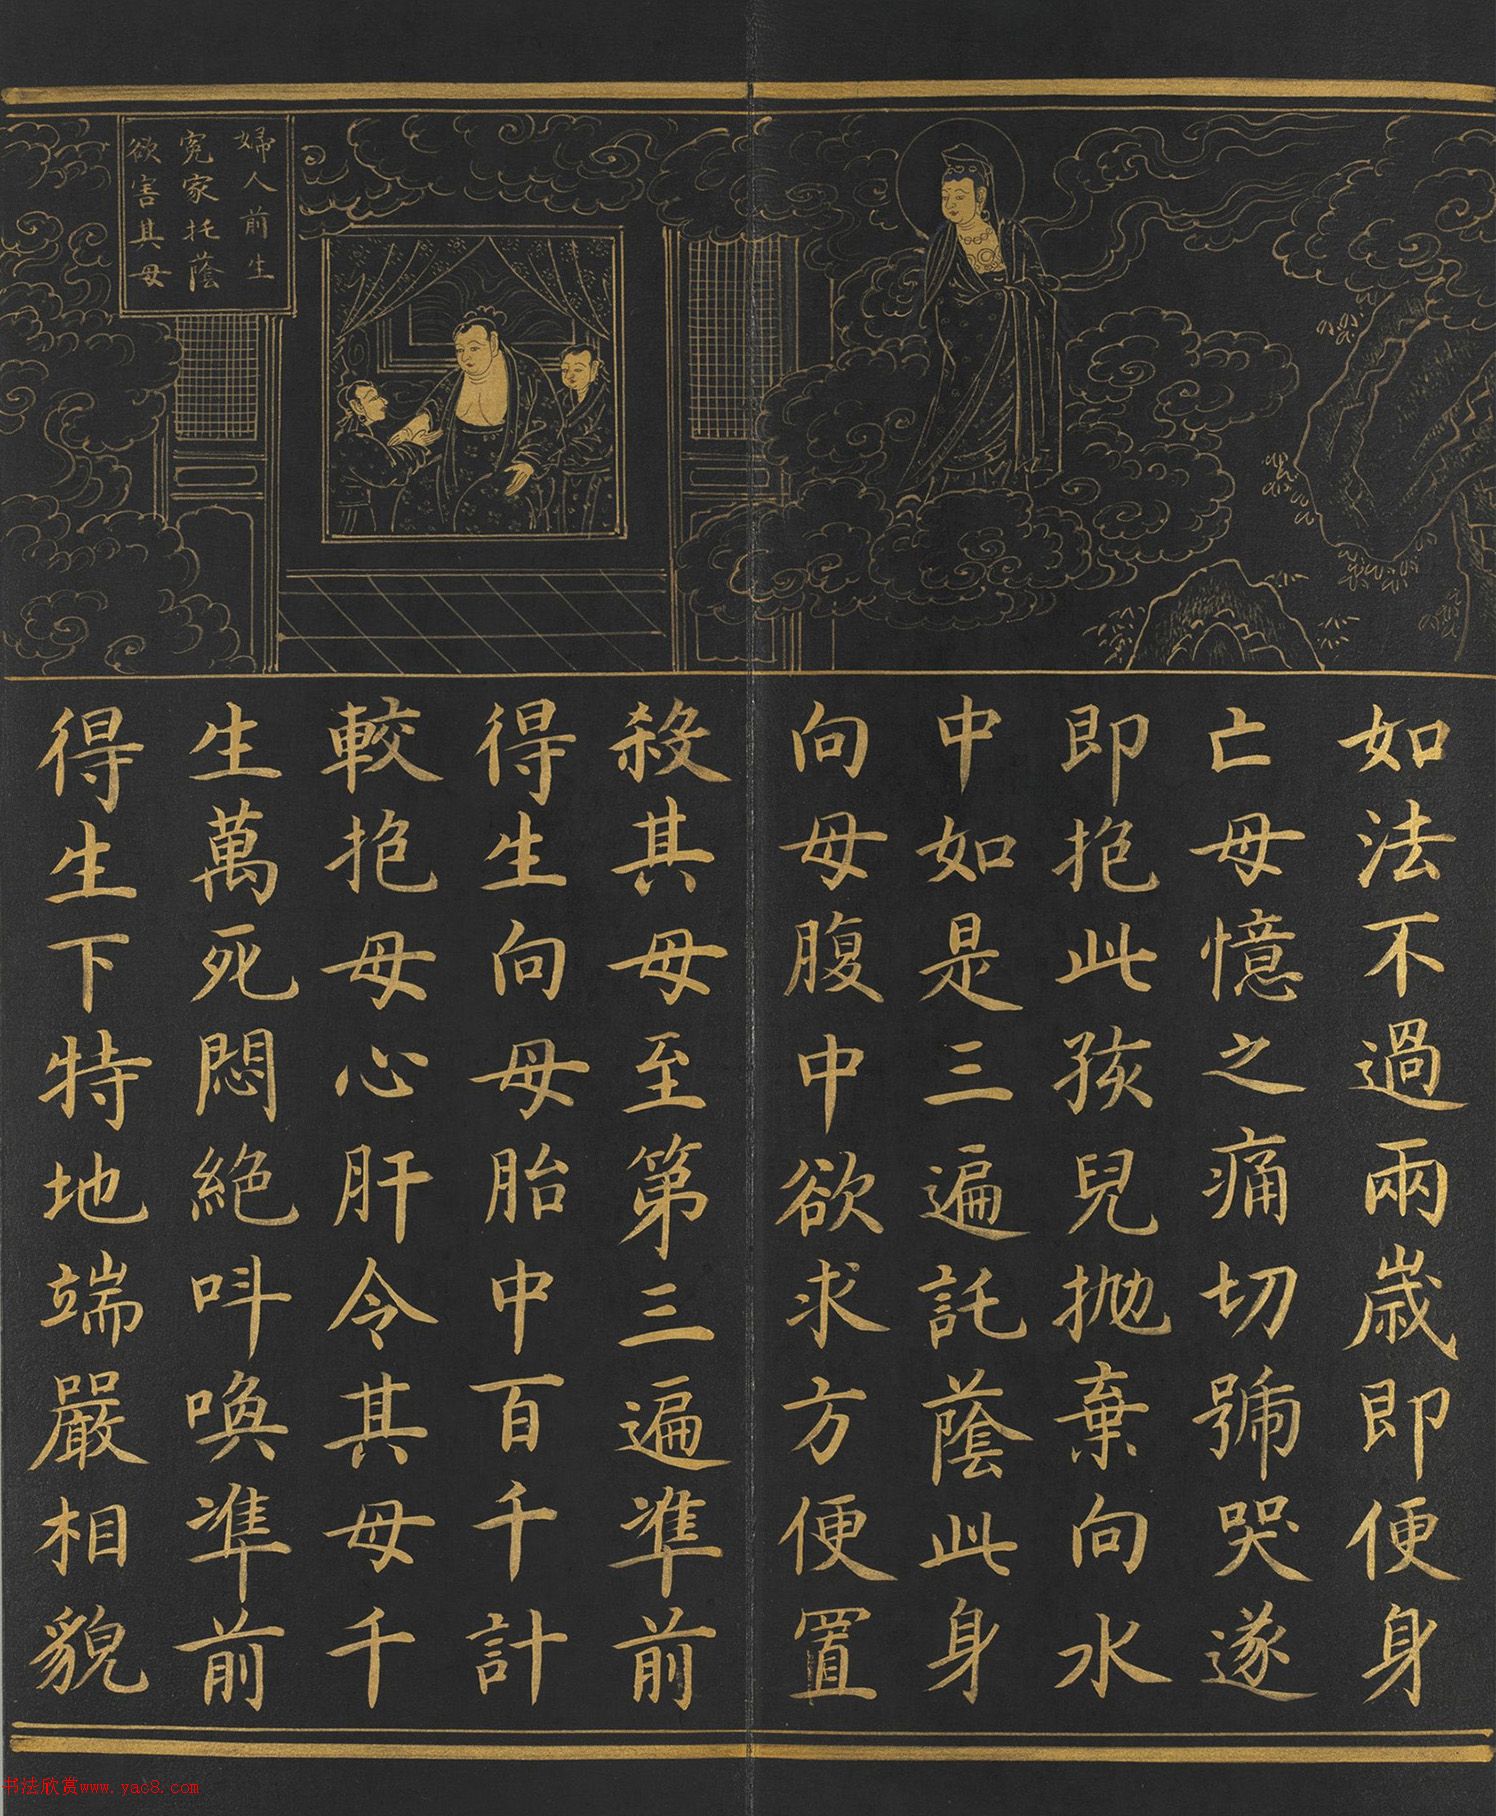 婦人前生
寃家托蔭
欲害其母
如法不過兩歲即便身
亡母憶之痛切號哭遂
即抱此孩兒抛棄向水
中如是三遍託蔭此身
向母腹中欲求方便置
殺其母至第三遍準前
得生向母胎中百千計
較抱母心肝令其母千
生萬死悶絕叫喚準前
得生下特地端嚴相貌
书法欣赏www.yac8.com